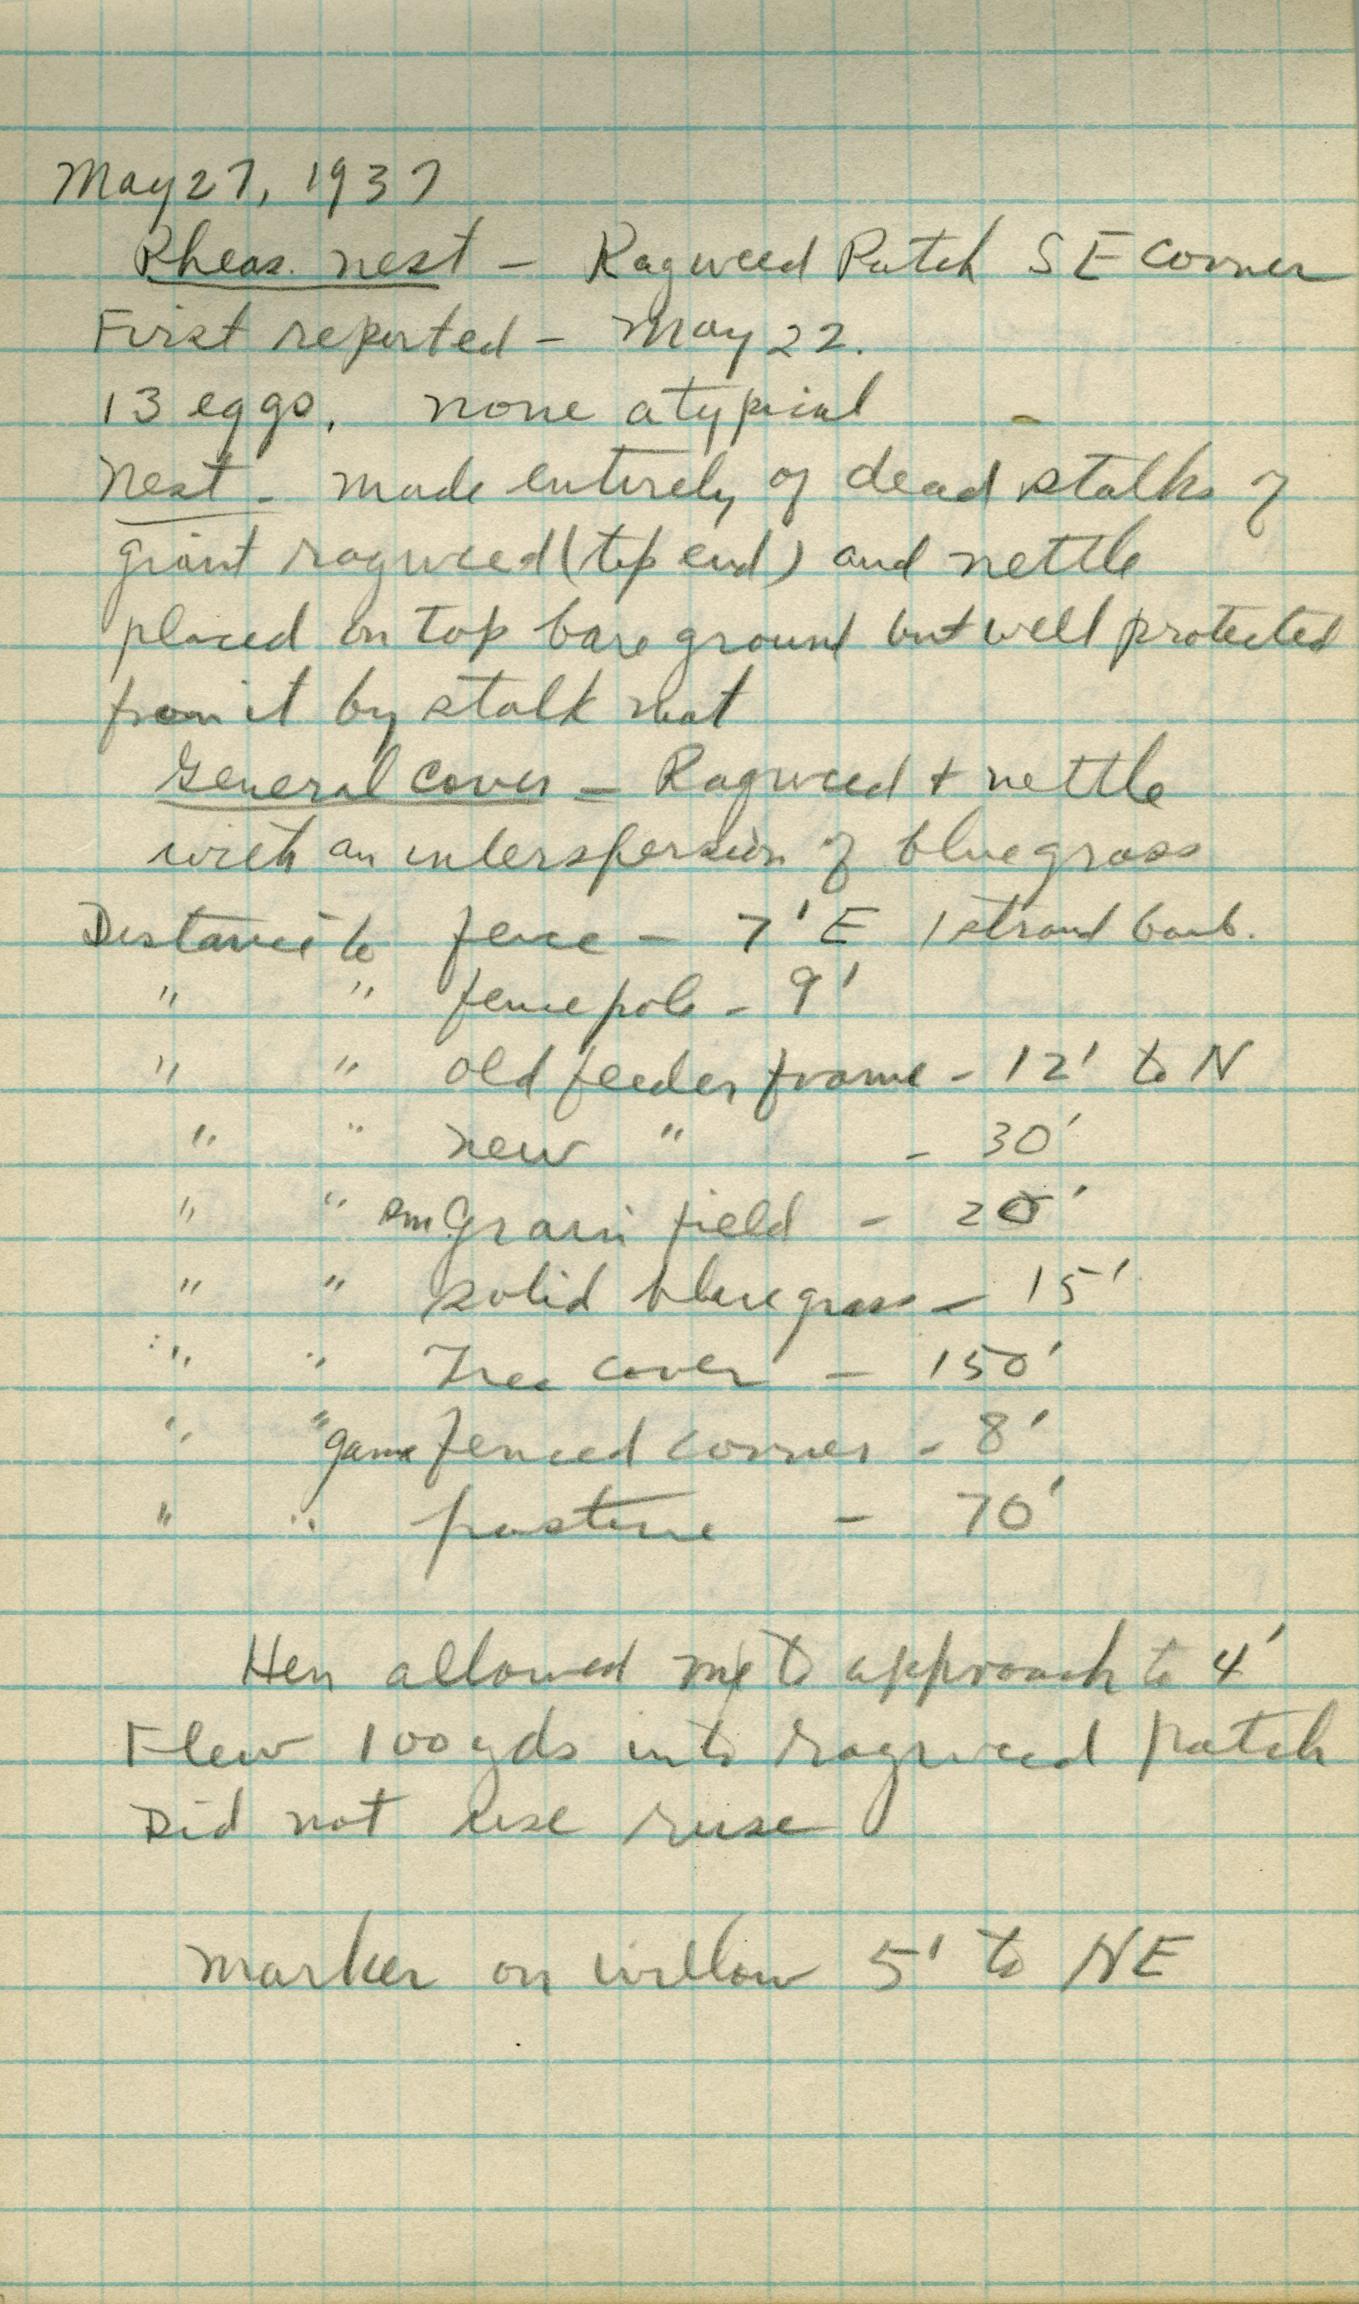 May 27, 1937
Pheas. nest - Ragweed Patch S E Corner
First reported - May 22.
13 eggs, none atypical
Nest - made entirely of dead stalks of
giant ragweed (top end) and nettle
placed on top bare ground but well protected
from it by stalk mat
General cover - Ragweed + nettle
with an interspersion of bluegrass
Distance to fence - 7' E 1 strand barb.
" " fence pole - 9'
" " old feeder frame - 12' to N
" " new " - 30'
" " sm Grain field - 20'
" " solid bluegrass - 15'
" " Tree cover - 150'
" " game fenced corner - 8'
" " pasture - 70'
Hen allowed me to approach to 4'
Flew 100 yds into ragweed patch
Did not use ruse
Marker on willow 5' to NE